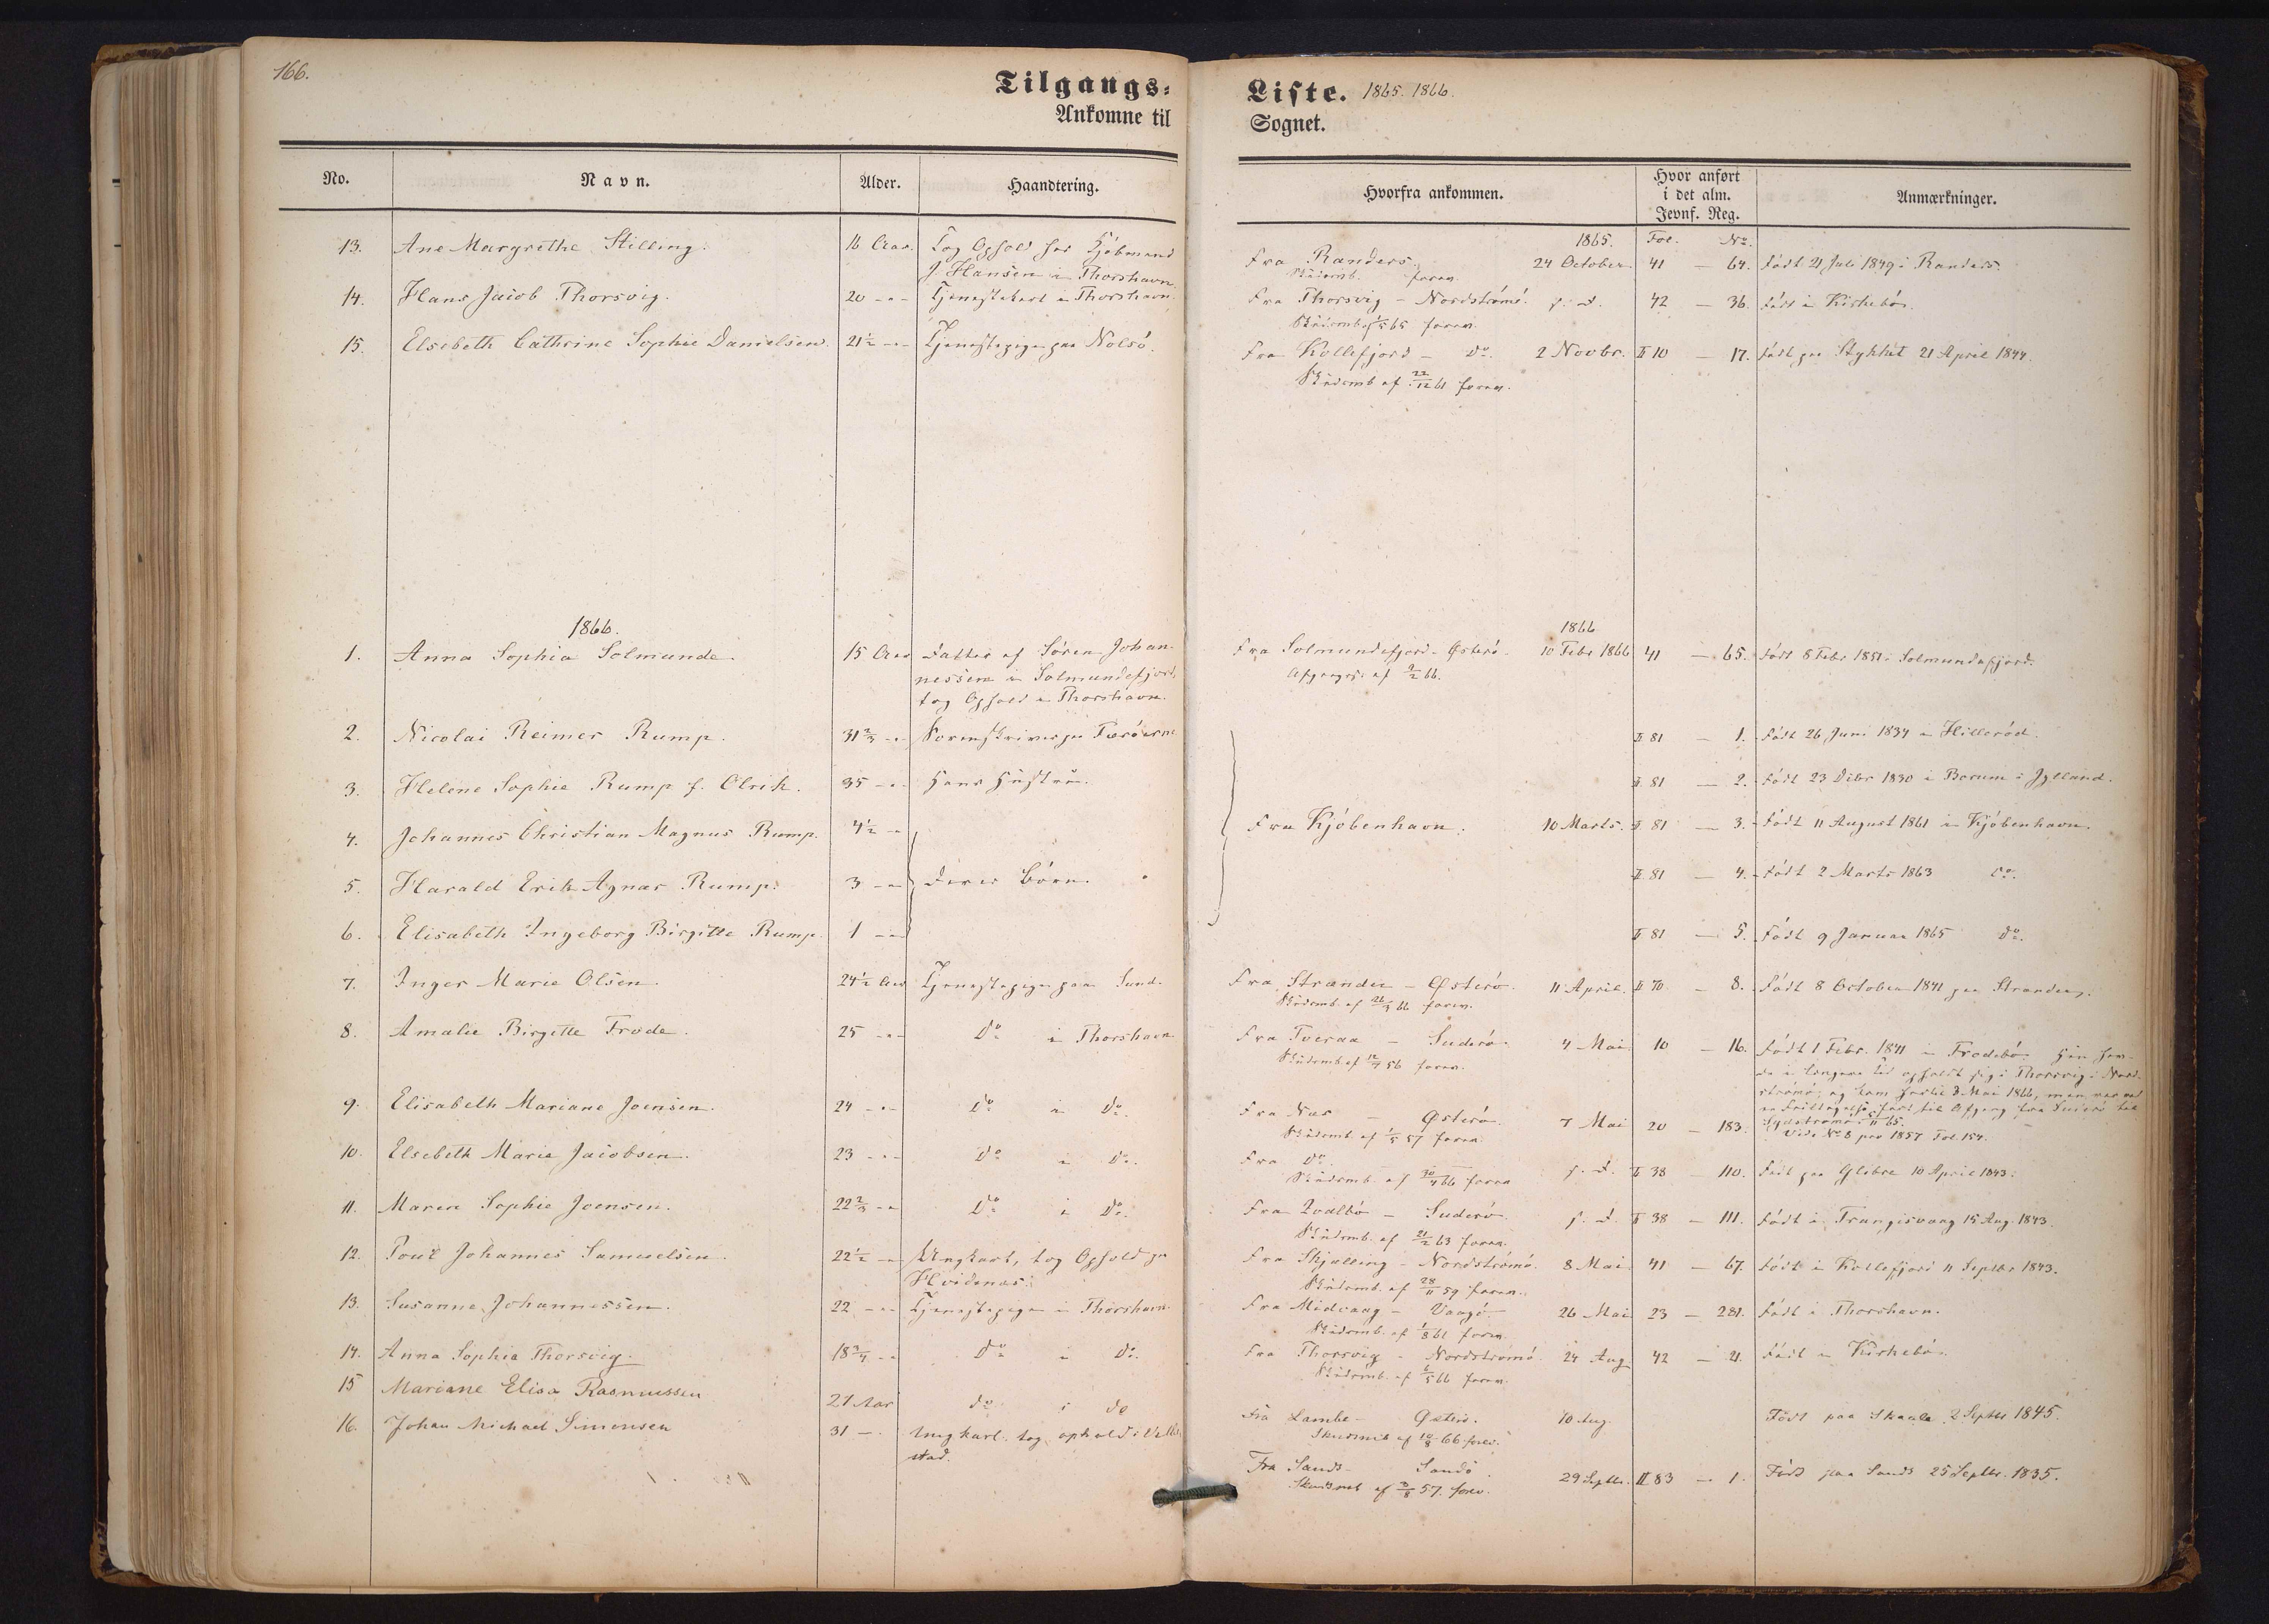 166.
Tilgangs-
Ankomne til
No.
Navn.
Alder.
Haandtering.
13. Ane Margrethe Stilling. 16 Aar. Tog Ophold hos Kjöbmand
J. Hansen i Thorshavn.
14. Hans Jacob Thorsvig. 20 -"- Tjenestekarl i Thorshavn.
15. Elsebeth Cathrine Sophie Danielsen. 21½ -"- Tjenestepige paa Nolsö.
1866.
1. Anna Sophia Solmunde. 15 Aar Datter af Sören Johan-
nessen i Solmundefjord,
tog Ophold i Thorshavn.
2. Nicolai Reimer Rump. 31⅔ -"- Sorenskriver paa Færöerne
3. Helene Sophie Rump f. Olrik. 35 -"- Hans Hustru.
4. Johannes Christian Magnus Rump. 4½ -"-
5. Harald Erik Agnar Rump. 3 -"- Deres Börn.
6. Elisabeth Ingeborg Birgitte Rump. 1 -"-
7. Inger Marie Olsen. 24½ Aar Tjenestepige paa Sund.
8. Amalie Birgitte Frode. 25 -"- Do i Thorshavn
9. Elisabeth Mariane Joensen. 24 -"- Do i Do.
10. Elsebeth Marie Jacobsen. 23 -"- Do i Do.
11. Maren Sophie Joensen. 22⅔ -"- Do i Do.
12. Poul Johannes Samuelsen. 22½ -"- Ungkarl, tog Ophold paa
Hvidenæs.
13. Susanne Johannessen. 22 -"- Tjenestepige i Thorshavn.
14. Anna Sophia Thorsvig. 18¾ -"- Do i Do.
15 Mariane Elisa Rasmussen 21 Aar do i do
16. Johan Michael Simonsen 31 -. Ungkarl. tog ophold i
stad.
Liste. 1865. 1866.
Sognet.
Hvorfra ankommen.
Hvor anført
i det alm.
Jevnf. Reg.
Anmærkninger.
1865. Fol. No.
Fra Randers. 24 October. 41 — 64. Född 21 Juli 1849 i Randers.
Skudsmb. foren.
Fra Thorsvig - Nordströmö. s. D. 42 — 36. Född i Kirkebö.
Skudsmb. af 1/5 65 foren.
Fra Kollefjord - Do. 2 Novbr. II 10 — 17. Född paa Stykket 21 April 1844.
Skudsmb af 22/12 61 foren.
1866
Fra Solmundefjord - Österö. 10 Febr 1866 41 — 65. Född 8 Febr 1851 i Solmundefjord.
Afgangs. af 9/2 66.
II 81 — 1. Född 26 Juni 1834 i Hilleröd.
II 81 — 2. Född 23 Debr 1830 i Borum i Jylland.
Fra Kjöbenhavn. 10 Marts. II 81 — 3. Född 11 August 1861 i Kjöbenhavn.
II 81 — 4. Född 2 Marts 1863 Do.
II 81 — 5. Född 9 Januar 1865 Do.
Fra Strander - Österö. 11 April. II 70 — 8. Född 8 October 1841 paa Strander.
Skudsmb. af 26/3 66 foren.
Fra Tveraa - Suderö. 4 Mai. 10 — 16. Född 1 Febr. 1841 i Frodebö.
Skudsmb af 12/4 56 foren.
i længere Tid opholdt sig i Thorsvig i Nord-
strömö, og kom hertil 3 Mai 1866, men
til Afgang fra Suderö til
Sydströmö
Vide No 8 pro 1857 Fol. 154.
Fra Næs - Österö. 7 Mai 20 — 183.
Skudsmb af 1/5 57 foren.
Fra Do. s. D. II 38 — 110. Född paa Glibre 10 April 1843.
Skudsmb. af 30/4 66 foren
Fra Qvalbö - Suderö. s. D. II 38 — 111. Född i Trangisvaag 15 Aug. 1843.
Skudsmb. af 21/2 63 foren.
Fra Skjælling - Nordströmö. 8 Mai. 41 — 67. Född i Kollefjord 11 Septbr 1843.
Skudsmb. af 28/11 59 foren.
Fra Midvaag - Vaagö. 26 Mai 23 — 281. Född i Thorshavn.
Skudsmb. af 1/8 61 foren.
Fra Thorsvig - Nordströmö. 24 Aug 42 — 21. Född i Kirkebö.
Skudsmb. af 6/5 66 foren.
Fra Lambe - Österö. 10 Aug. Född paa Skaale 2 Septbr 1845.
Skudsmb af 10/8 66 forev.
Fra Sands - Sandö. 29 Septbr. II 83 — 1. Född paa Sands 25 Septbr. 1835.
Skudsmb af 3/8 57. forev.